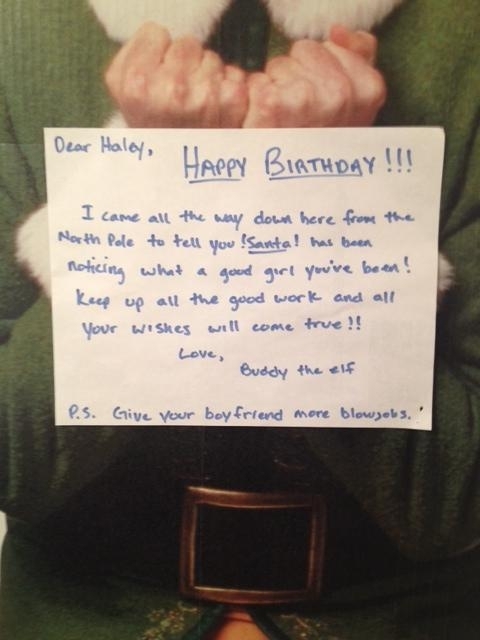 Dear Haley,
HAPPY BIRTHDAY !!!
I came all the way down here from the
North Pole to tell you !Santa! has been
noticing what a good girl you've been!
Keep up all the good work and all
your wishes will come true!!
Love,
Buddy the elf
P.S. Give your boyfriend more blowjobs.